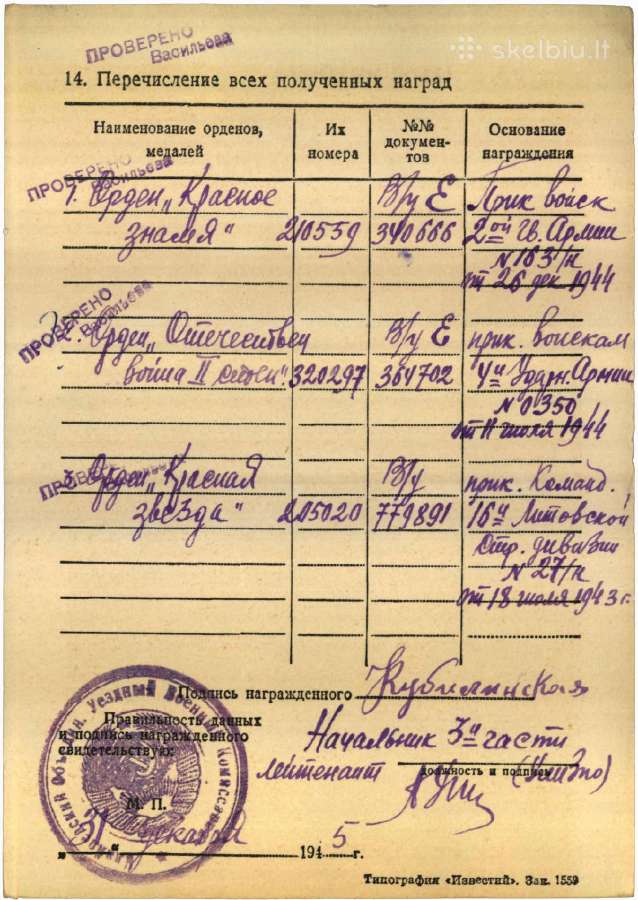 ПРОВЕРЕНО
Васильева
skelbiu.lt
14. Перечисление всех полученных наград
Наименование орденов, медалей
Их номера
№№ докумен-тов
Основание награждения
ПРОВЕРЕНО
Васильева
1. Орден „Красное В/у Е Прик войск
знамя“ 210559 340666 2ой Гв. Армии
N 163/н
от 26 дек 1944
ПРОВЕРЕНО
Васильева
2. Орден „Отечествен В/у Е прик. войскам
война II степ“. 320297 364702 4й Ударн. Армии
N 0350
от 11 июля 1944
ПРОВЕРЕНО
3. Орден „Красная В/у прик. Команд.
звезда“ 215020 779891 16й Литовской
Стр. дивизии
N 27/н
от 18 июля 1943 г.
Подпись награжденного Кубилинская
Правильность данных
и подпись награжденного
свидетельствую:
Начальник 3й части
лейтенант
должность и подпись
М. П.
31 декабря
„ “ 1945 г.
Уездный Военный Комиссариат
Типография «Известий». Зак. 1559